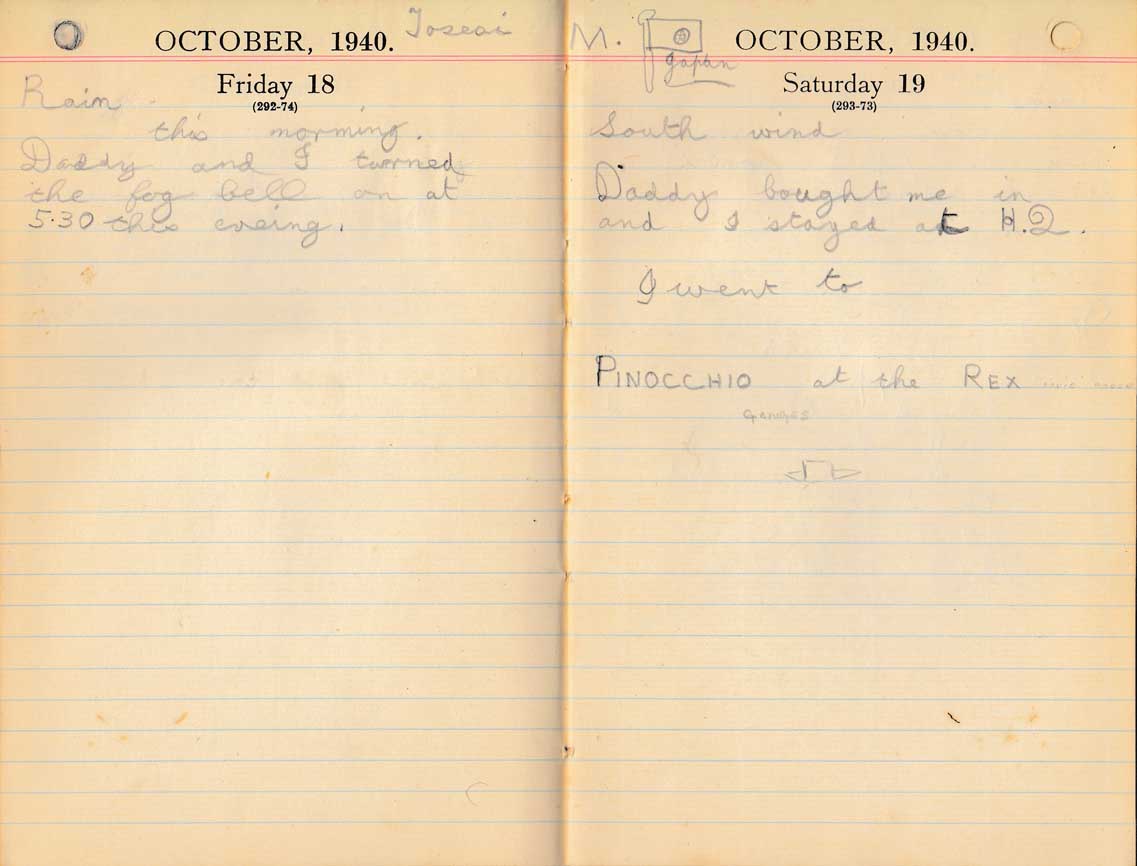 OCTOBER, 1940.
Friday 18
(292-74)
Rain
this morning.
Daddy and I turned
the fog bell on at
5.30 this eveing.
M.
Japan
OCTOBER, 1940.
Saturday 19
(293-73)
South wind
Daddy bought me in
and I stayed at H.Q.
I went to
PINOCCHIO at the REX
GANGES